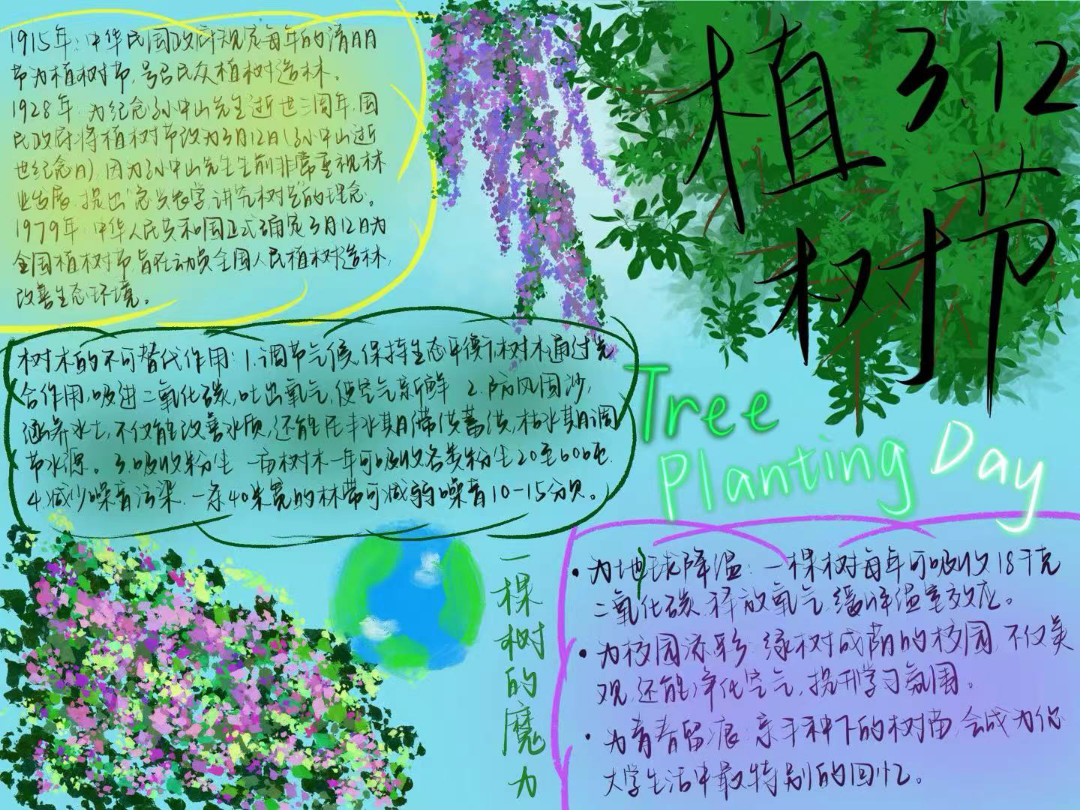 1915年：中华民国政府规定每年的清明
节为植树节，号召民众植树造林。
1928年：为纪念孙中山先生逝世三周年，国
民政府将植树节改为3月12日（孙中山逝
世纪念日），因为孙中山先生生前非常重视林
业发展，提出
1979年：中华人民共和国正式确定3月12日为
全国植树节，旨在动员全国人民植树造林，
改善生态环境。
植树节
3.12
Tree
Planting Day
树木的不可替代作用：1.调节气候，保持生态平衡：树木通过光
合作用，吸进二氧化碳，吐出氧气，使空气新鲜 2.防风固沙，
涵养水土，不仅能改善水质，还能在丰水期
节水源。3.吸收粉尘 一亩树木一年可吸收各类粉尘20至60吨
4.减少噪音污染 一条40米宽的林带可减弱噪音10-15分贝。
一棵树的魔力
• 为地球降温：一棵树每年可吸收18千克
二氧化碳，释放氧气，缓解温室效应。
• 为校园添彩：绿树成荫的校园，不仅美
观，还能净化空气，提升学习氛围。
• 为青春留痕：亲手种下的树苗，会成为你
大学生活中最特别的回忆。